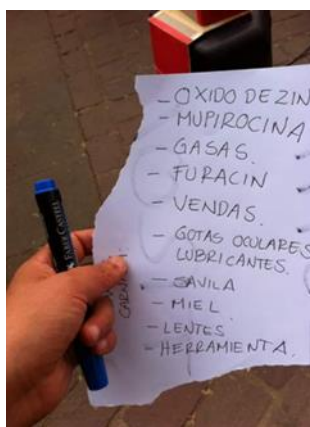 - OXIDO DE ZIN
- MUPIROCINA
- GASAS.
- FURACIN
- VENDAS.
- GOTAS OCULARES
LUBRICANTES.
- SAVILA
- MIEL
- LENTES
- HERRAMIENTA.
FABER CASTELL